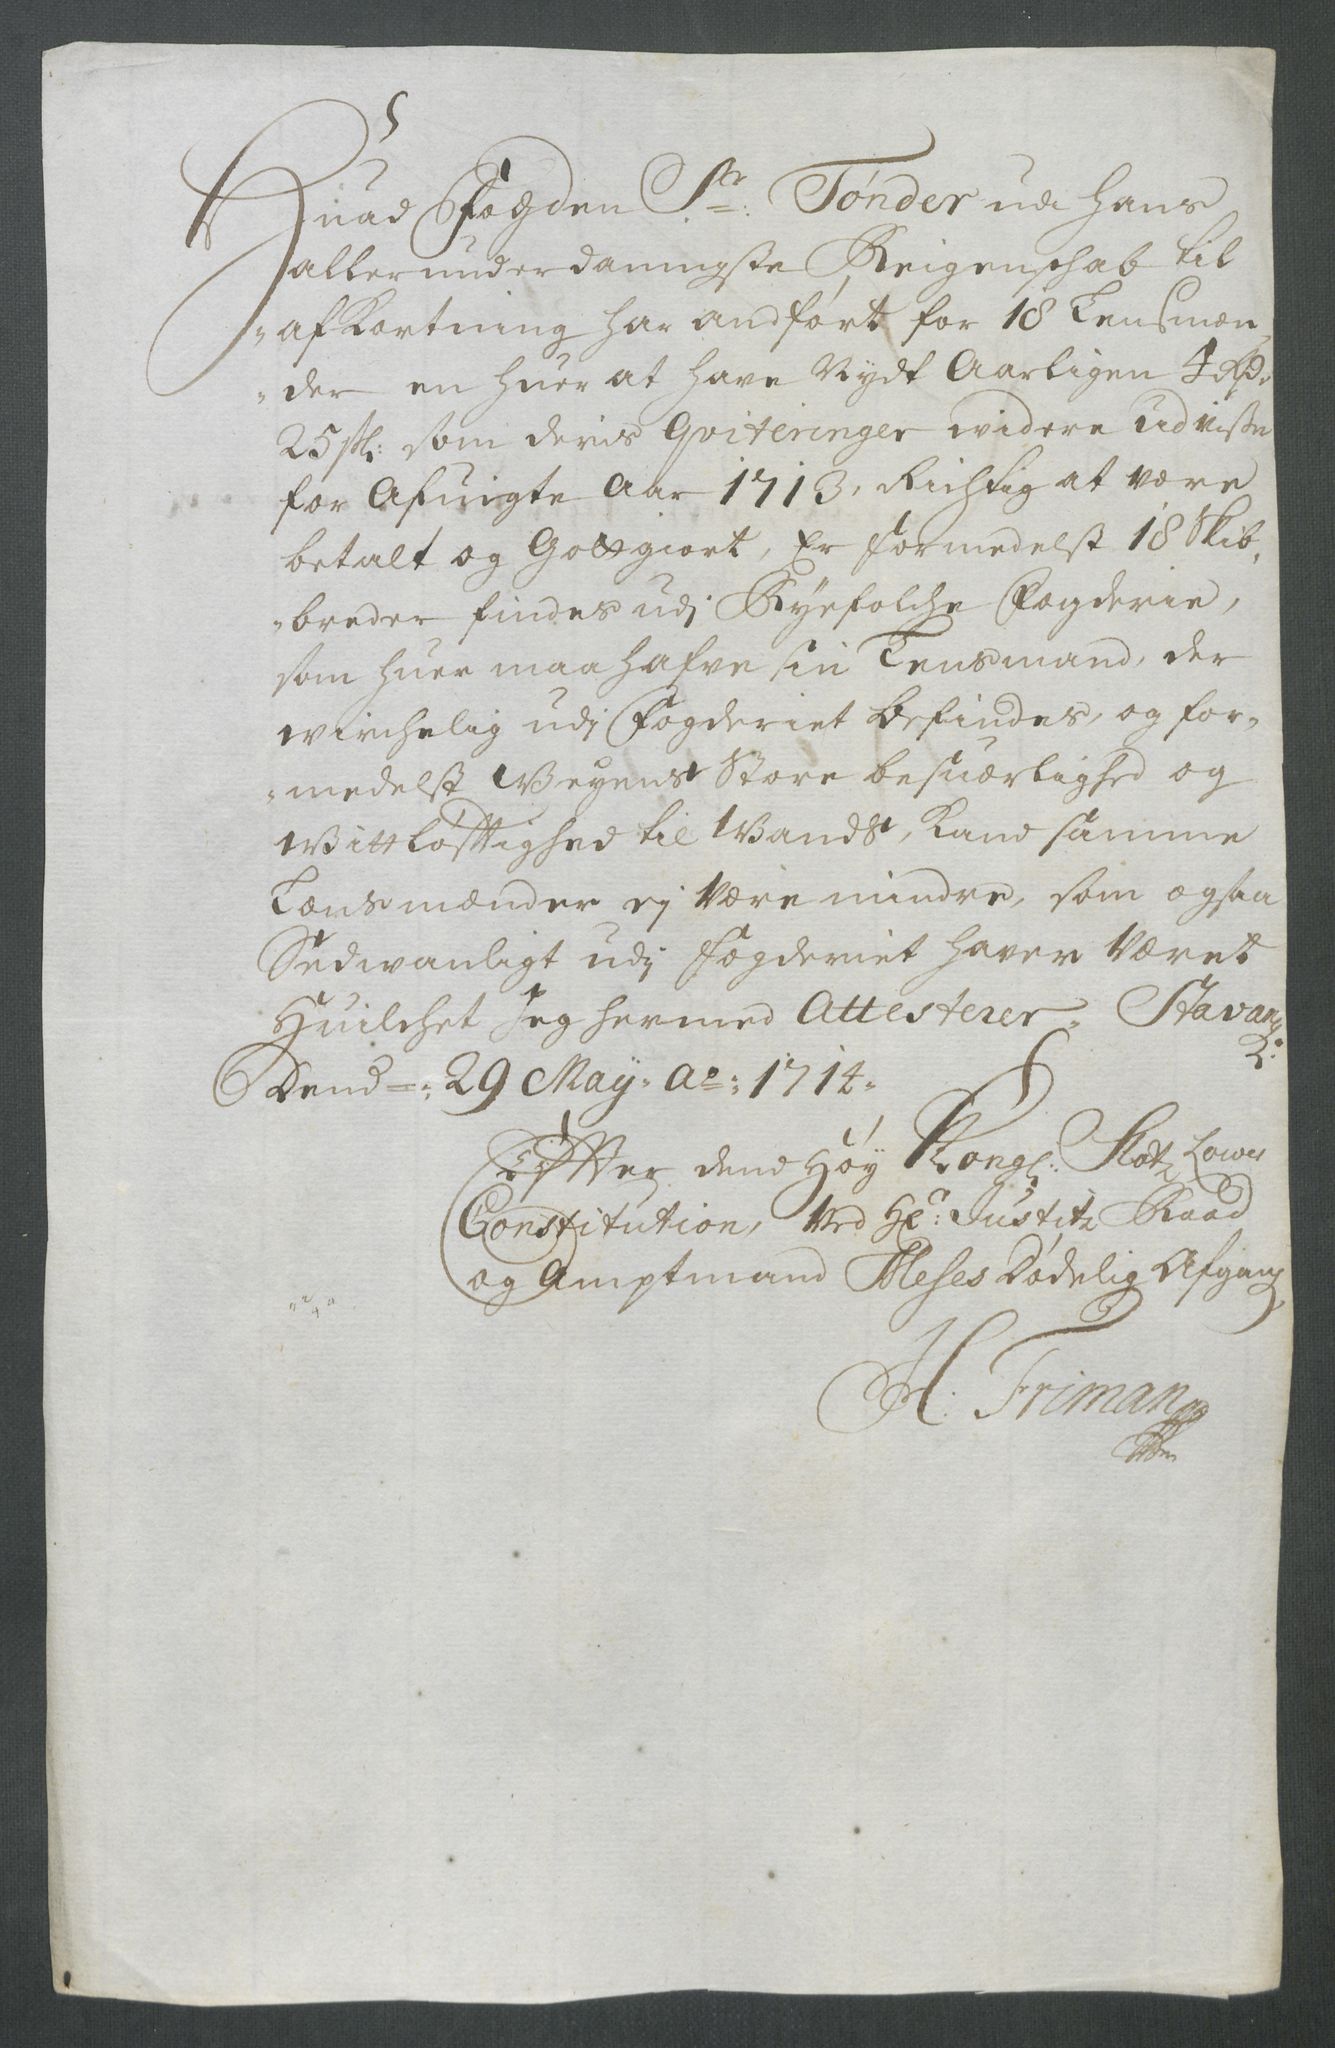 Huad Fogden Sr: Tønder udi hans
allerunderdanigste Reigenschab til
afkortning har andført for 18 Lensmæn
der en huer at have Nydt Aarligen 4 Rd:
25 sk: som deris Qviteringer widere udviser
for Afuigte Aar 1713, Richtig at være
betalt og Gottgiort, Er formedelst 18 Skib,,
,,breder findes udj Ryefolche Fogderie,
som huer maa hafve sin Lensmand, der
wirchelig udj Fogderiet befindes, og for,,
,,medelst Weyens Store besuærlighed og
Wittløftighed til Wands, kand samme
Lensmænder ej være mindre, som ogsaa
Sedwanligt udj Fogderiet haver Været
Huilchet Jeg hermed Attesterer. Stavang
Dend =: 29 May. Ao: 1714.
Efter dend Høy Kongl: Slotz Lowe
Constitution, Ved Hr: Justitz Raad
og Amptmand Weses Dødelig Afgang
H: Friman